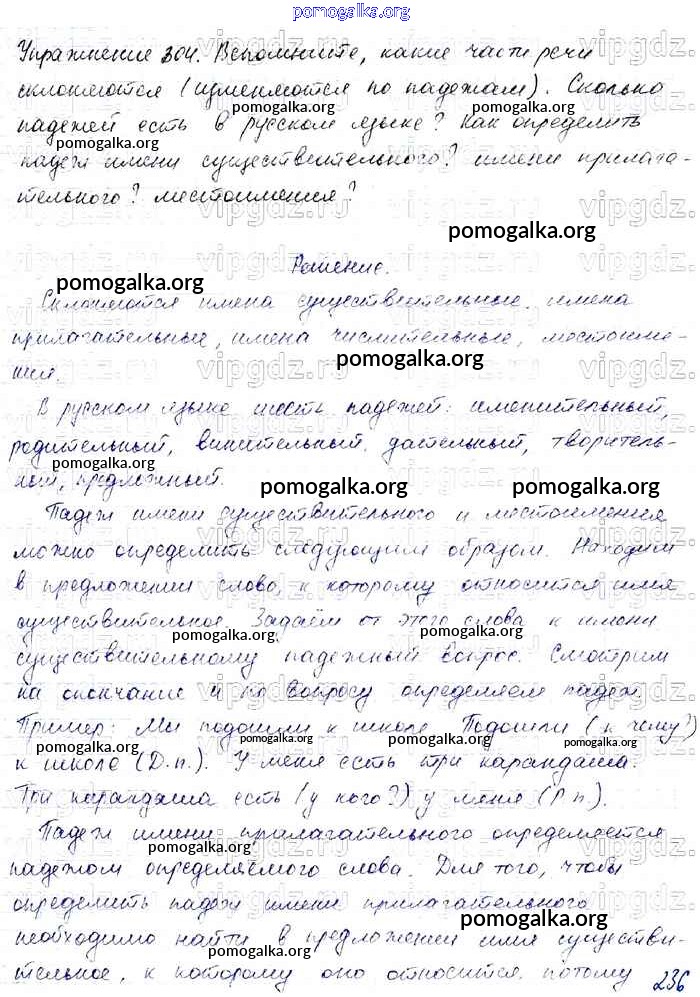 pomogalka.org
Упражнение 304. Вспомните, какие части речи
склоняются (изменяются по падежам). Сколько
pomogalka.org pomogalka.org
падежей есть в русском языке? Как определить
падеж имени существительного? имени прилага-
pomogalka.org
тельного? местоимения?
pomogalka.org
Решение.
pomogalka.org
Склоняются имена существительные, имена
прилагательные, имена числительные, местоиме-
pomogalka.org
ния.
В русском языке шесть падежей: именительный,
родительный, винительный, дательный, творитель-
pomogalka.org
ный, предложный.
pomogalka.org pomogalka.org
Падеж имени существительного и местоимения
можно определить следующим образом. Находим
в предложении слово, к которому относится имя
существительное. Задаём от этого слова к имени
pomogalka.org pomogalka.org
существительному падежный вопрос. Смотрим
на окончание и по вопросу определяем падеж.
Пример: Мы подошли к школе. Подошли (к чему?)
pomogalka.org pomogalka.org
к школе (Д.п.). У меня есть три карандаша.
Три карандаша есть (у кого?) у меня (Р.п.).
Падеж имени прилагательного определяется
pomogalka.org
падежом определяемого слова. Для того, чтобы
определить падеж имени прилагательного
pomogalka.org
необходимо найти в предложении имя существи-
тельное, к которому оно относится, потому
pomogalka.org
236
vipgdz.ru